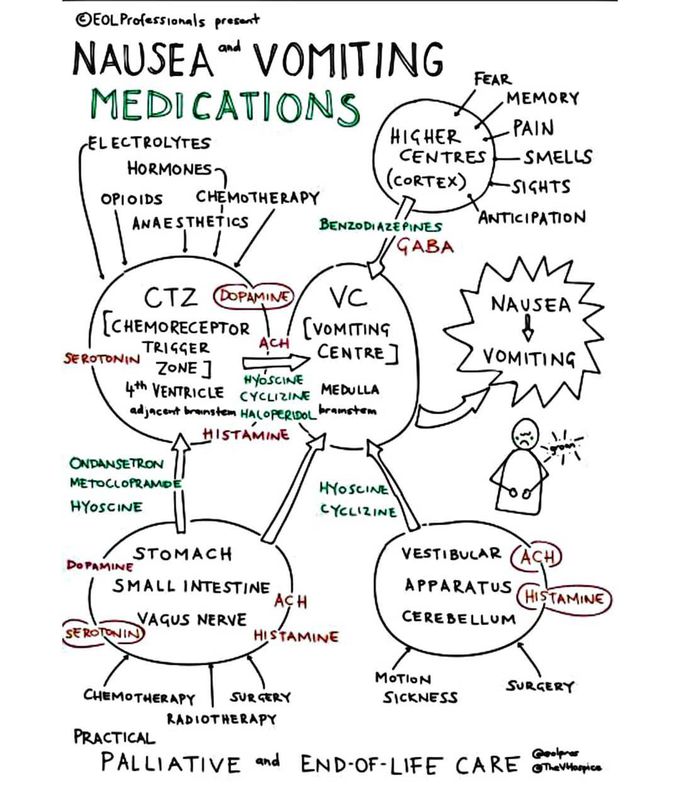 ©EOLProfessionals present
NAUSEA and VOMITING
MEDICATIONS
ELECTROLYTES
HORMONES
OPIOIDS
CHEMOTHERAPY
ANAESTHETICS
HIGHER
CENTRES
(CORTEX)
FEAR
MEMORY
PAIN
SMELLS
SIGHTS
ANTICIPATION
BENZODIAZEPINES
GABA
CTZ
DOPAMINE
[CHEMORECEPTOR
TRIGGER
ZONE]
SEROTONIN
4th VENTRICLE
adjacent brainstem
ACH
HYOSCINE
CYCLIZINE
HALOPERIDOL
HISTAMINE
VC
[VOMITING
CENTRE]
MEDULLA
brainstem
NAUSEA
VOMITING
groan
ONDANSETRON
METOCLOPRAMIDE
HYOSCINE
HYOSCINE
CYCLIZINE
STOMACH
DOPAMINE
SMALL INTESTINE
ACH
VAGUS NERVE
SEROTONIN
HISTAMINE
VESTIBULAR
ACH
APPARATUS
HISTAMINE
CEREBELLUM
CHEMOTHERAPY
SURGERY
RADIOTHERAPY
MOTION
SICKNESS
SURGERY
PRACTICAL
PALLIATIVE and END-OF-LIFE CARE
@eolpros
@TheVHospice